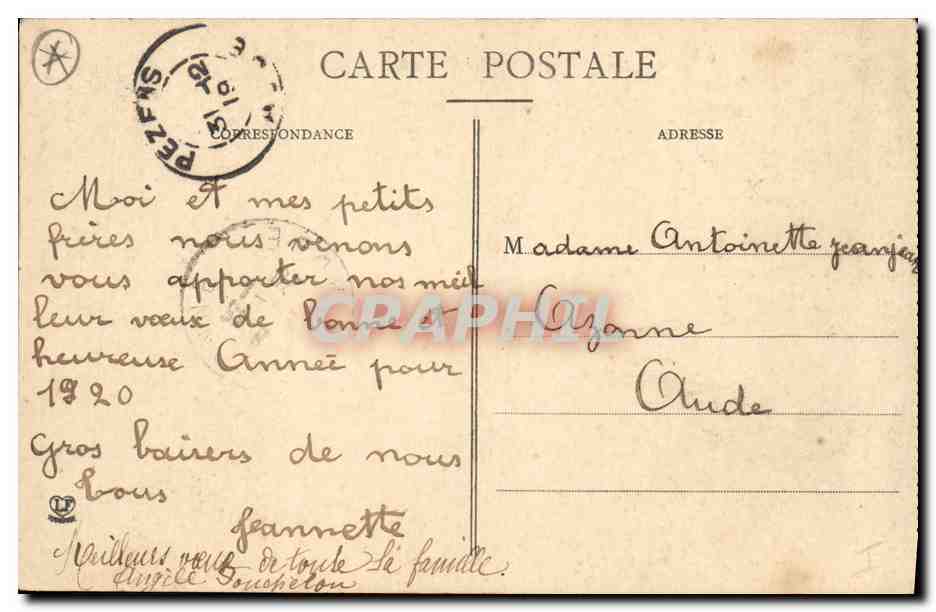 CARTE POSTALE
PEZENS
31 -12
19
CORRESPONDANCE
ADRESSE
Moi et mes petits
frères nous venons
vous apporter nos meil
leur vœux de bonne et
heureuse Année pour
1920
Gros baisers de nous
tous
Jeannette
Meilleurs vœux de toute La famille.
Angèle
LF
Madame Antoinette Jeanjean
Azonne
Aude
CPAPHIL